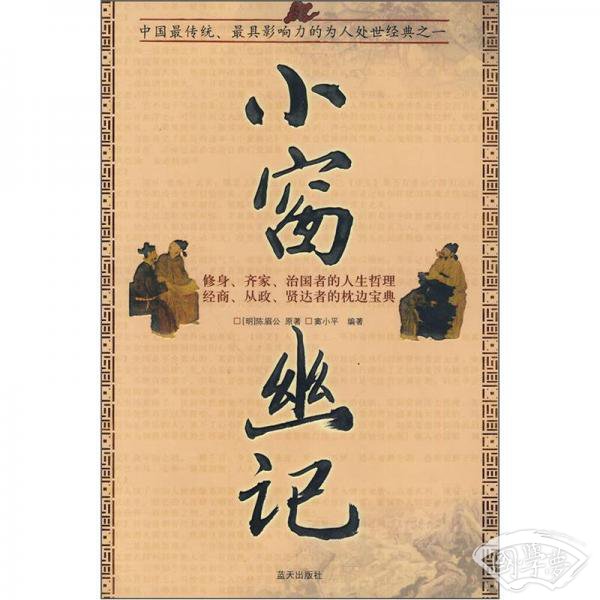 中国最传统、最具影响力的为人处世经典之一
小窗幽记
修身、齐家、治国者的人生哲理
经商、从政、贤达者的枕边宝典
□[明]陈眉公 原著 □窦小平 编著
蓝天出版社
国学梦